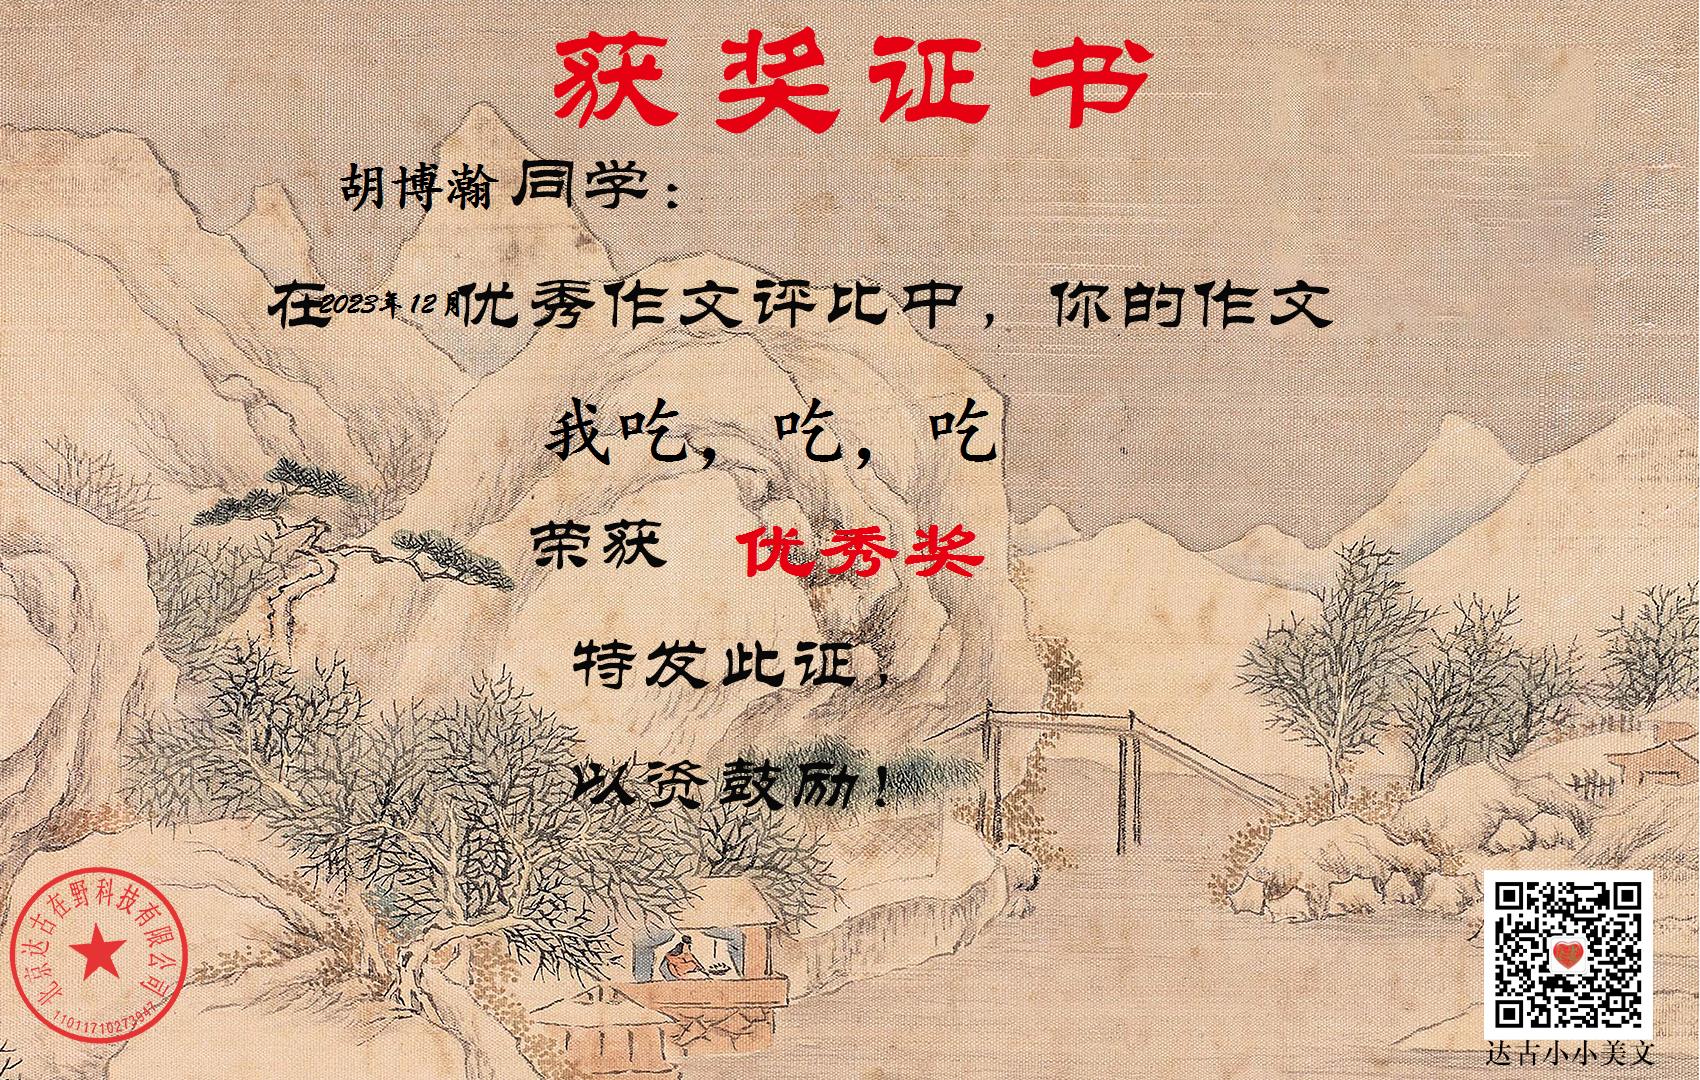 获奖证书
胡博瀚同学：
在2023年12月优秀作文评比中，你的作文
我吃，吃，吃
荣获 优秀奖
特发此证，
以资鼓励！
北京达古在野科技有限公司
11011710273947
达古小小美文